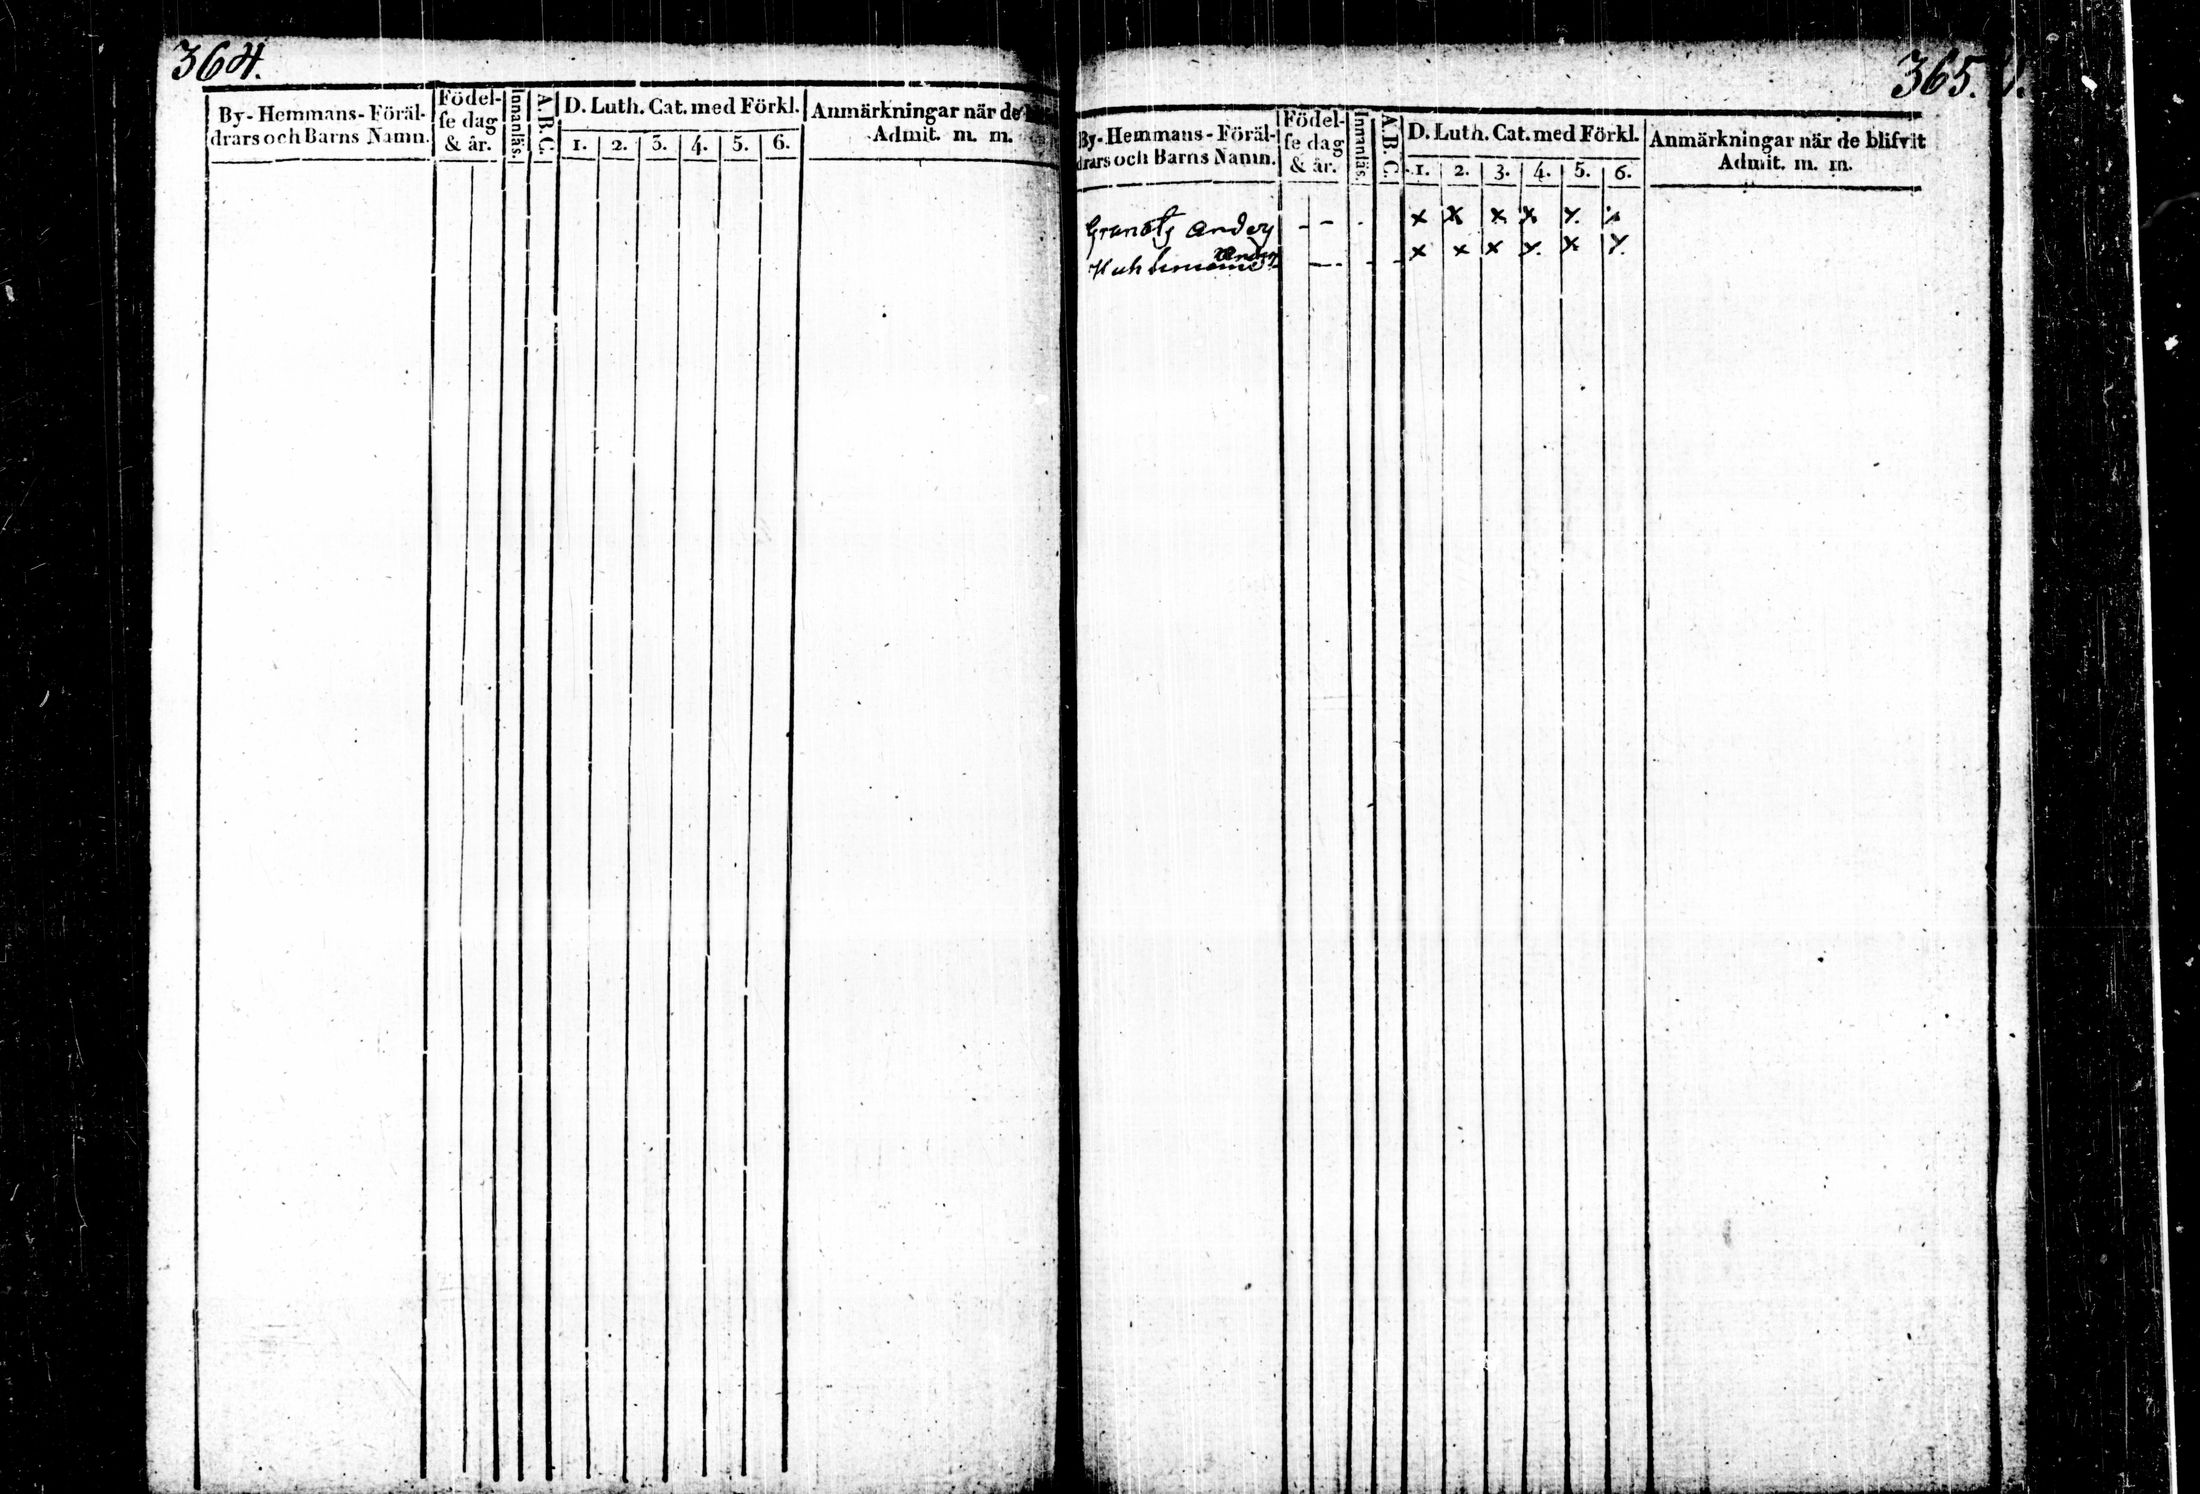 364.
By- Hemmans- Föräl-
drars och Barns Namn.
Födel-
se dag
& år.
Innanläs.
A.B.C.
D. Luth. Cat. med Förkl.
1. 2. 3. 4. 5. 6.
Anmärkningar när de
Admit. m. m.
365.
By- Hemmans- Föräl-
drars och Barns Namn.
Födel-
se dag
& år.
Innanläs.
A.B.C.
D. Luth. Cat. med Förkl.
1. 2. 3. 4. 5. 6.
Anmärkningar när de blifvit
Admit. m. m.
Anders - - - x x x x x x
- - - x x x x x x